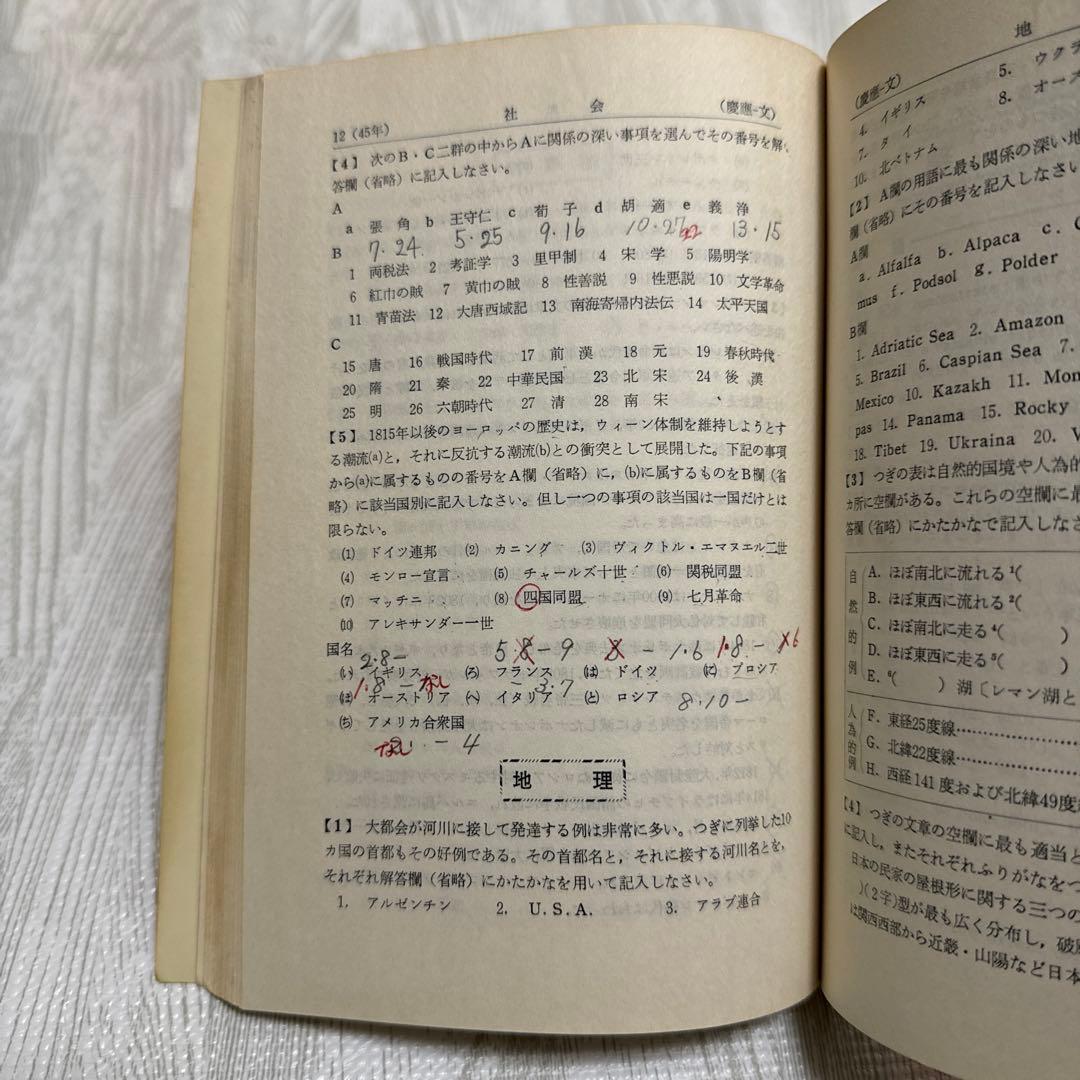 12（45年） 社会 （慶應-文）
【4】 次のB・C二群の中からAに関係の深い事項を選んでその番号を解
答欄（省略）に記入しなさい。
A
a 張角 b 王守仁 c 荀子 d 胡適 e 義浄
7・24 5・25 9・16 10・27 22 13・15
B
1 両税法 2 考証学 3 里甲制 4 宋学 5 陽明学
6 紅巾の賊 7 黄巾の賊 8 性善説 9 性悪説 10 文学革命
11 青苗法 12 大唐西域記 13 南海寄帰内法伝 14 太平天国
C
15 唐 16 戦国時代 17 前漢 18 元 19 春秋時代
20 隋 21 秦 22 中華民国 23 北宋 24 後漢
25 明 26 六朝時代 27 清 28 南宋
【5】 1815年以後のヨーロッパの歴史は，ウィーン体制を維持しようとす
る潮流(a)と，それに反抗する潮流(b)との衝突として展開した。下記の事項
から(a)に属するものの番号をA欄（省略）に，(b)に属するものをB欄（省
略）に該当国別に記入しなさい。但し一つの事項の該当国は一国だけとは
限らない。
(1) ドイツ連邦 (2) カニング (3) ヴィクトル・エマヌエル二世
(4) モンロー宣言 (5) チャールズ十世 (6) 関税同盟
(7) マッチニ (8) 四国同盟 (9) 七月革命
(10) アレキサンダー一世
国名
2・8－ 5・8－9 8－1・6 1・8－ 6
(い) イギリス (ろ) フランス (は) ドイツ (に) プロシア
1・8－なし 3・7 8・10－
(ほ) オーストリア (へ) イタリア (と) ロシア
(ち) アメリカ合衆国
なし －4
地理
【1】 大都会が河川に接して発達する例は非常に多い。つぎに列挙した10
カ国の首都もその好例である。その首都名と，それに接する河川名とを，
それぞれ解答欄（省略）にかたかなを用いて記入しなさい。
1. アルゼンチン 2. U.S.A. 3. アラブ連合
地
（慶應-文）
4. イギリス 5. ウクラ
7. タイ 8. オース
10. 北ベトナム
【2】 A欄の用語に最も関係の深い地
欄（省略）にその番号を記入しなさい
A欄
a. Alfalfa b. Alpaca c. C
mus f. Podsol g. Polder
B欄
1. Adriatic Sea 2. Amazon
5. Brazil 6. Caspian Sea 7.
Mexico 10. Kazakh 11. Mon
pas 14. Panama 15. Rocky
18. Tibet 19. Ukraina 20. V
【3】 つぎの表は自然的国境や人為的
カ所に空欄がある。これらの空欄に最
答欄（省略）にかたかなで記入しなさ
自然的例
A. ほぼ南北に流れる 1(
B. ほぼ東西に流れる 2(
C. ほぼ南北に走る 4( )
D. ほぼ東西に走る 5( )
E. 6( ) 湖〔レマン湖と
人為的例
F. 東経25度線
G. 北緯22度線
H. 西経141度および北緯49度
【4】 つぎの文章の空欄に最も適当と
に記入し，またそれぞれふりがなをつ
日本の民家の屋根形に関する三つの
)(2字)型が最も広く分布し，破
は関西西部から近畿・山陽など日本